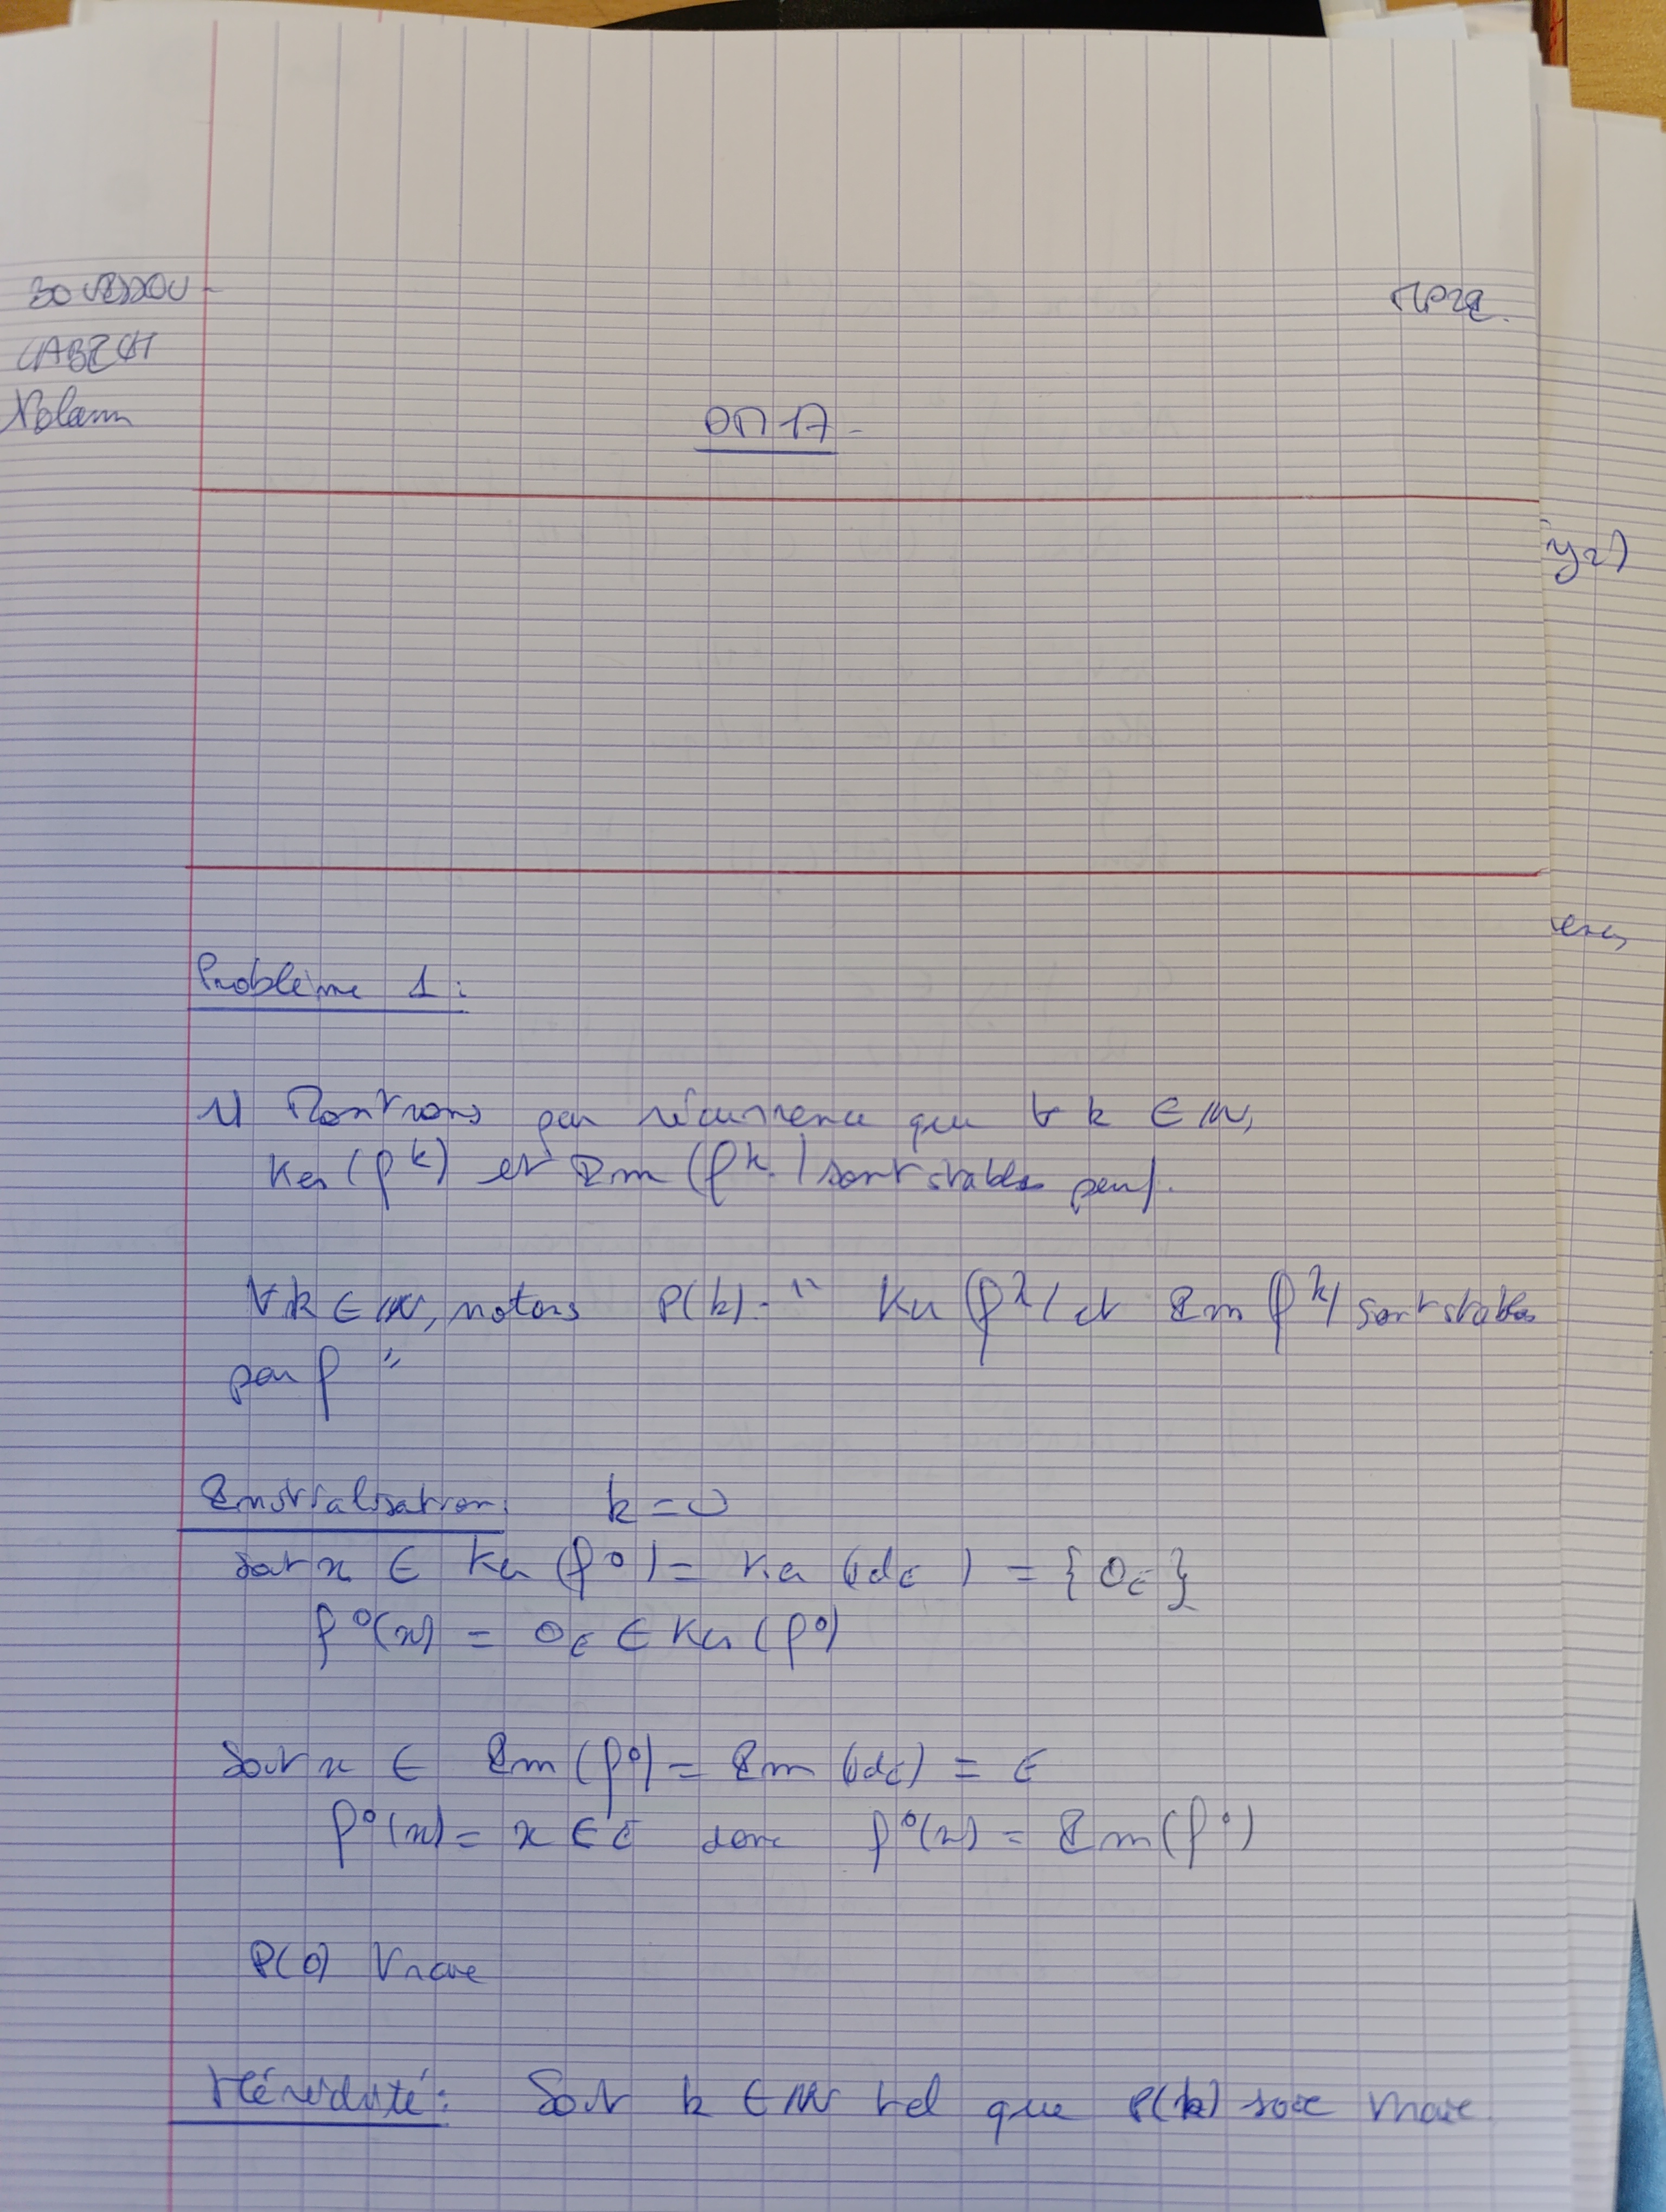 MP2I.
Nolann
DM 17
Problème 1 :
1) Montrons par récurrence que ∀ k ∈ ℕ,
Ker (f^k) et Im (f^k) sont stables par f.
∀k ∈ ℕ, notons P(k) : " Ker (f^k) et Im f^k) sont stables
par f "
Initialisation : k = 0
Soit x ∈ Ker (f^0) = Ker (id_E) = {0_E}
f^0(x) = 0_E ∈ Ker (f^0)
Soit x ∈ Im (f^0) = Im (id_E) = E
f^0(x) = x ∈ E donc f^0(x) = Im (f^0)
P(0) Vraie
Hérédité : Soit k ∈ ℕ tel que P(k) soit vraie.